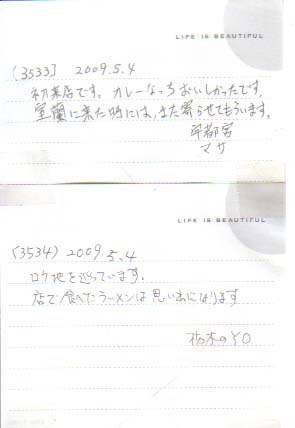 LIFE IS BEAUTIFUL
(3533) 2009.5.4
初来店です。カレーなっちおいしかったです。
室蘭に来た時には、また寄らせてもらいます。
宇都宮
マサ
LIFE IS BEAUTIFUL
(3534) 2009.5.4
ロケ地を巡っています。
店で食べたラーメンは思い出になります
栃木のYO